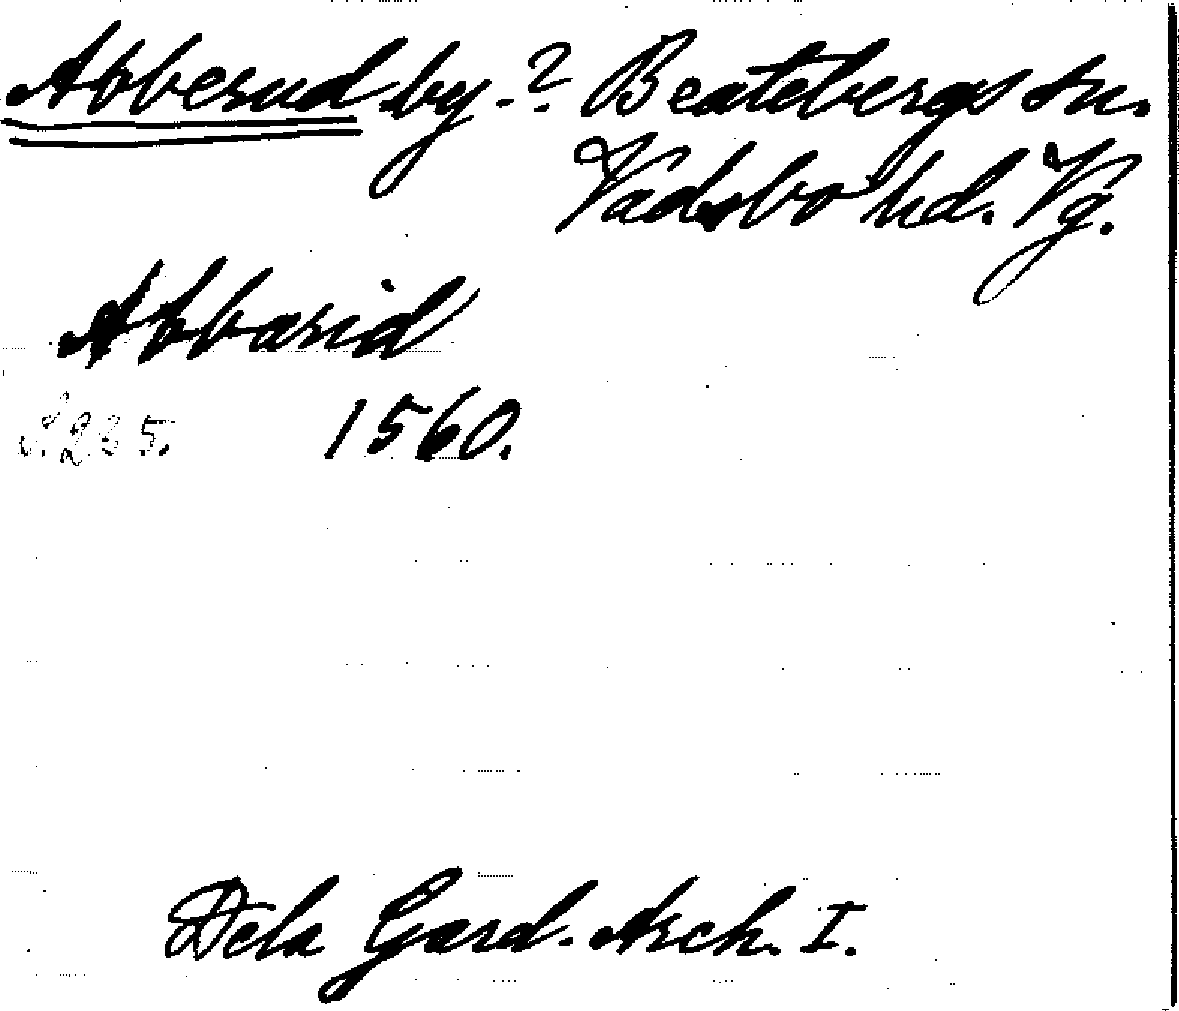 Abberud by. ? Beatebergs sn.
Vadsbo hd. Vg.
Abbarid
S. 235. 1560.
Dela Gard. Arch. I.